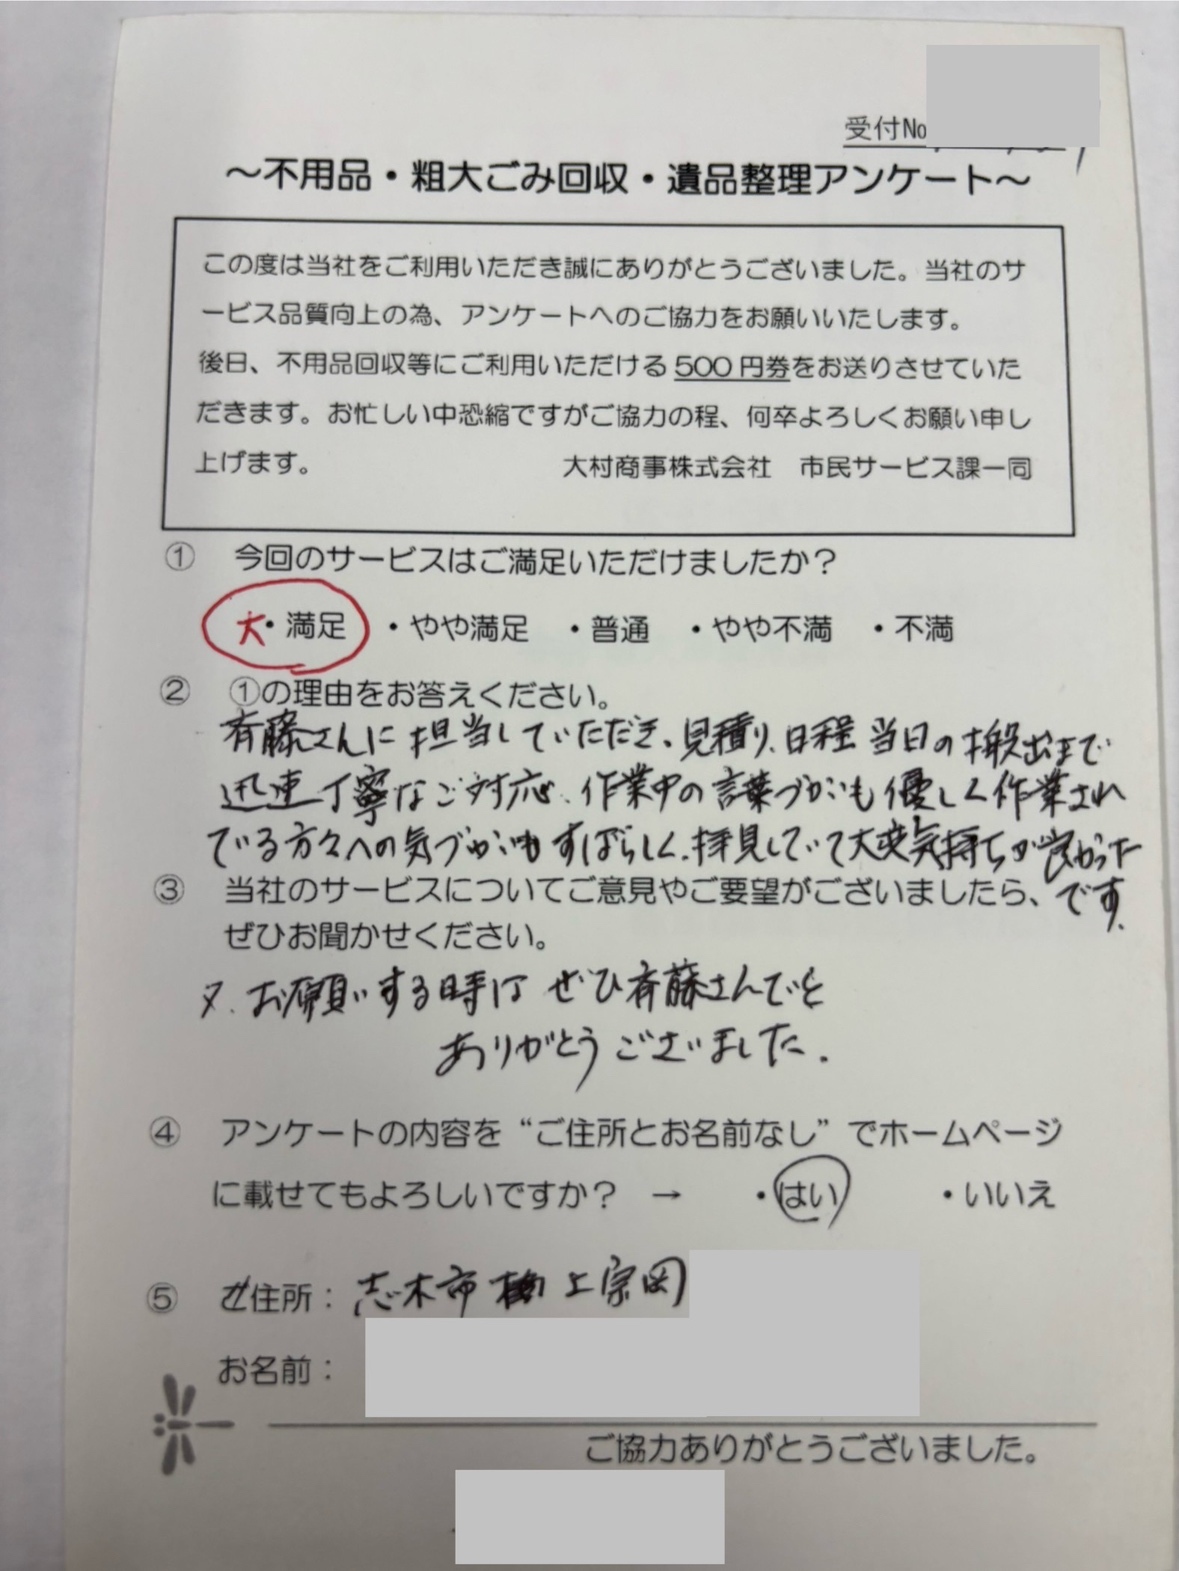 受付No
～不用品・粗大ごみ回収・遺品整理アンケート～
この度は当社をご利用いただき誠にありがとうございました。当社のサ
ービス品質向上の為、アンケートへのご協力をお願いいたします。
後日、不用品回収等にご利用いただける500円券をお送りさせていた
だきます。お忙しい中恐縮ですがご協力の程、何卒よろしくお願い申し
上げます。 大村商事株式会社 市民サービス課一同
① 今回のサービスはご満足いただけましたか？
大・満足 ・やや満足 ・普通 ・やや不満 ・不満
② ①の理由をお答えください。
斉藤さんに担当していただき、見積り、日程、当日の搬出まで
迅速丁寧なご対応、作業中の言葉づかいも優しく作業され
ている方々への気づかいもすばらしく、拝見していて大変気持ちが良かった
です。
③ 当社のサービスについてご意見やご要望がございましたら、
ぜひお聞かせください。
又、お願いする時は ぜひ斉藤さんでと
ありがとうございました。
④ アンケートの内容を“ご住所とお名前なし”でホームページ
に載せてもよろしいですか？ → ・はい ・いいえ
⑤ ご住所： 志木市 上宗岡
お名前：
ご協力ありがとうございました。